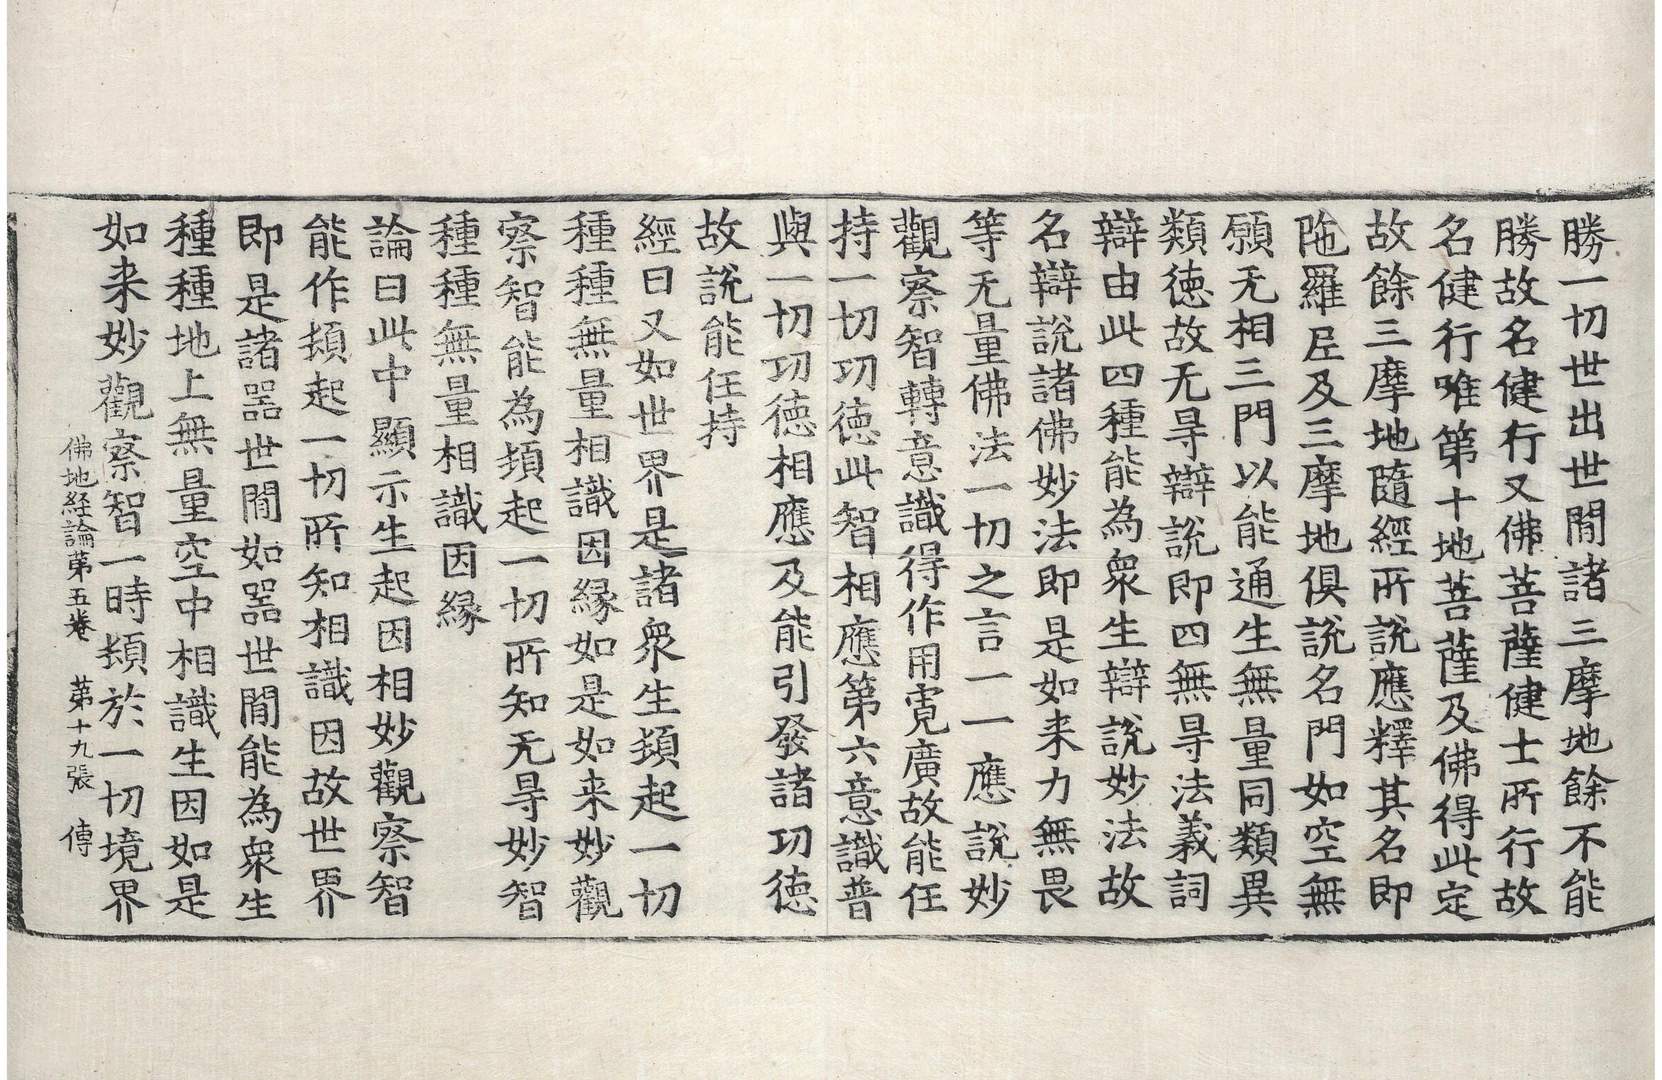 勝一切世出世間諸三摩地餘不能
勝故名健行又佛菩薩健士所行故
名健行唯第十地菩薩及佛得此定
故餘三摩地隨經所說應釋其名即
陁羅𡰱及三摩地俱說名門如空無
願无相三門以能通生無量同類異
類徳故无㝵辯說即四無㝵法義詞
辯由此四種能為衆生辯說妙法故
名辯說諸佛妙法即是如来力無畏
等无量佛法一切之言一一應說妙
觀察智轉意識得作用寛廣故能任
持一切功徳此智相應第六意識普
與一切功徳相應及能引發諸功徳
故說能任持
經曰又如世界是諸衆生頓起一切
種種無量相識因縁如是如来妙觀
察智能為頓起一切所知无㝵妙智
種種無量相識因縁
論曰此中顯示生起因相妙觀察智
能作頓起一切所知相識因故世界
即是諸噐世間如噐世間能為衆生
種種地上無量空中相識生因如是
如来妙觀察智一時頓於一切境界
佛地経論第五卷 第十九張 傳